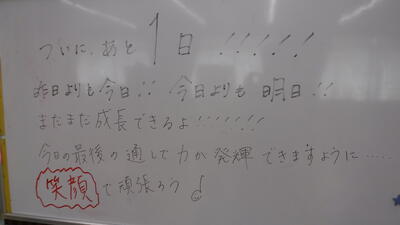 ついに、あと1日!!!!!!
昨日よりも今日!! 今日よりも明日!!
まだまだ成長できるよ!!!!!!!
今日の最後の通しで力が発揮できますように……
笑顔で頑張ろう!